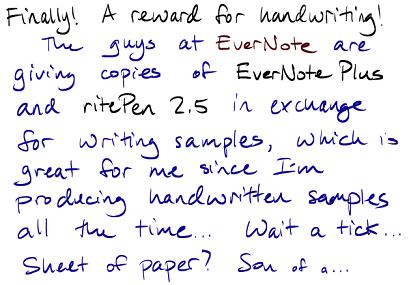 Finally! A reward for handwriting!
The guys at EverNote are
giving copies of EverNote Plus
and ritePen 2.5 in exchange
for writing samples, which is
great for me since I'm
producing handwritten samples
all the time... Wait a tick...
Sheet of paper? Son of a...